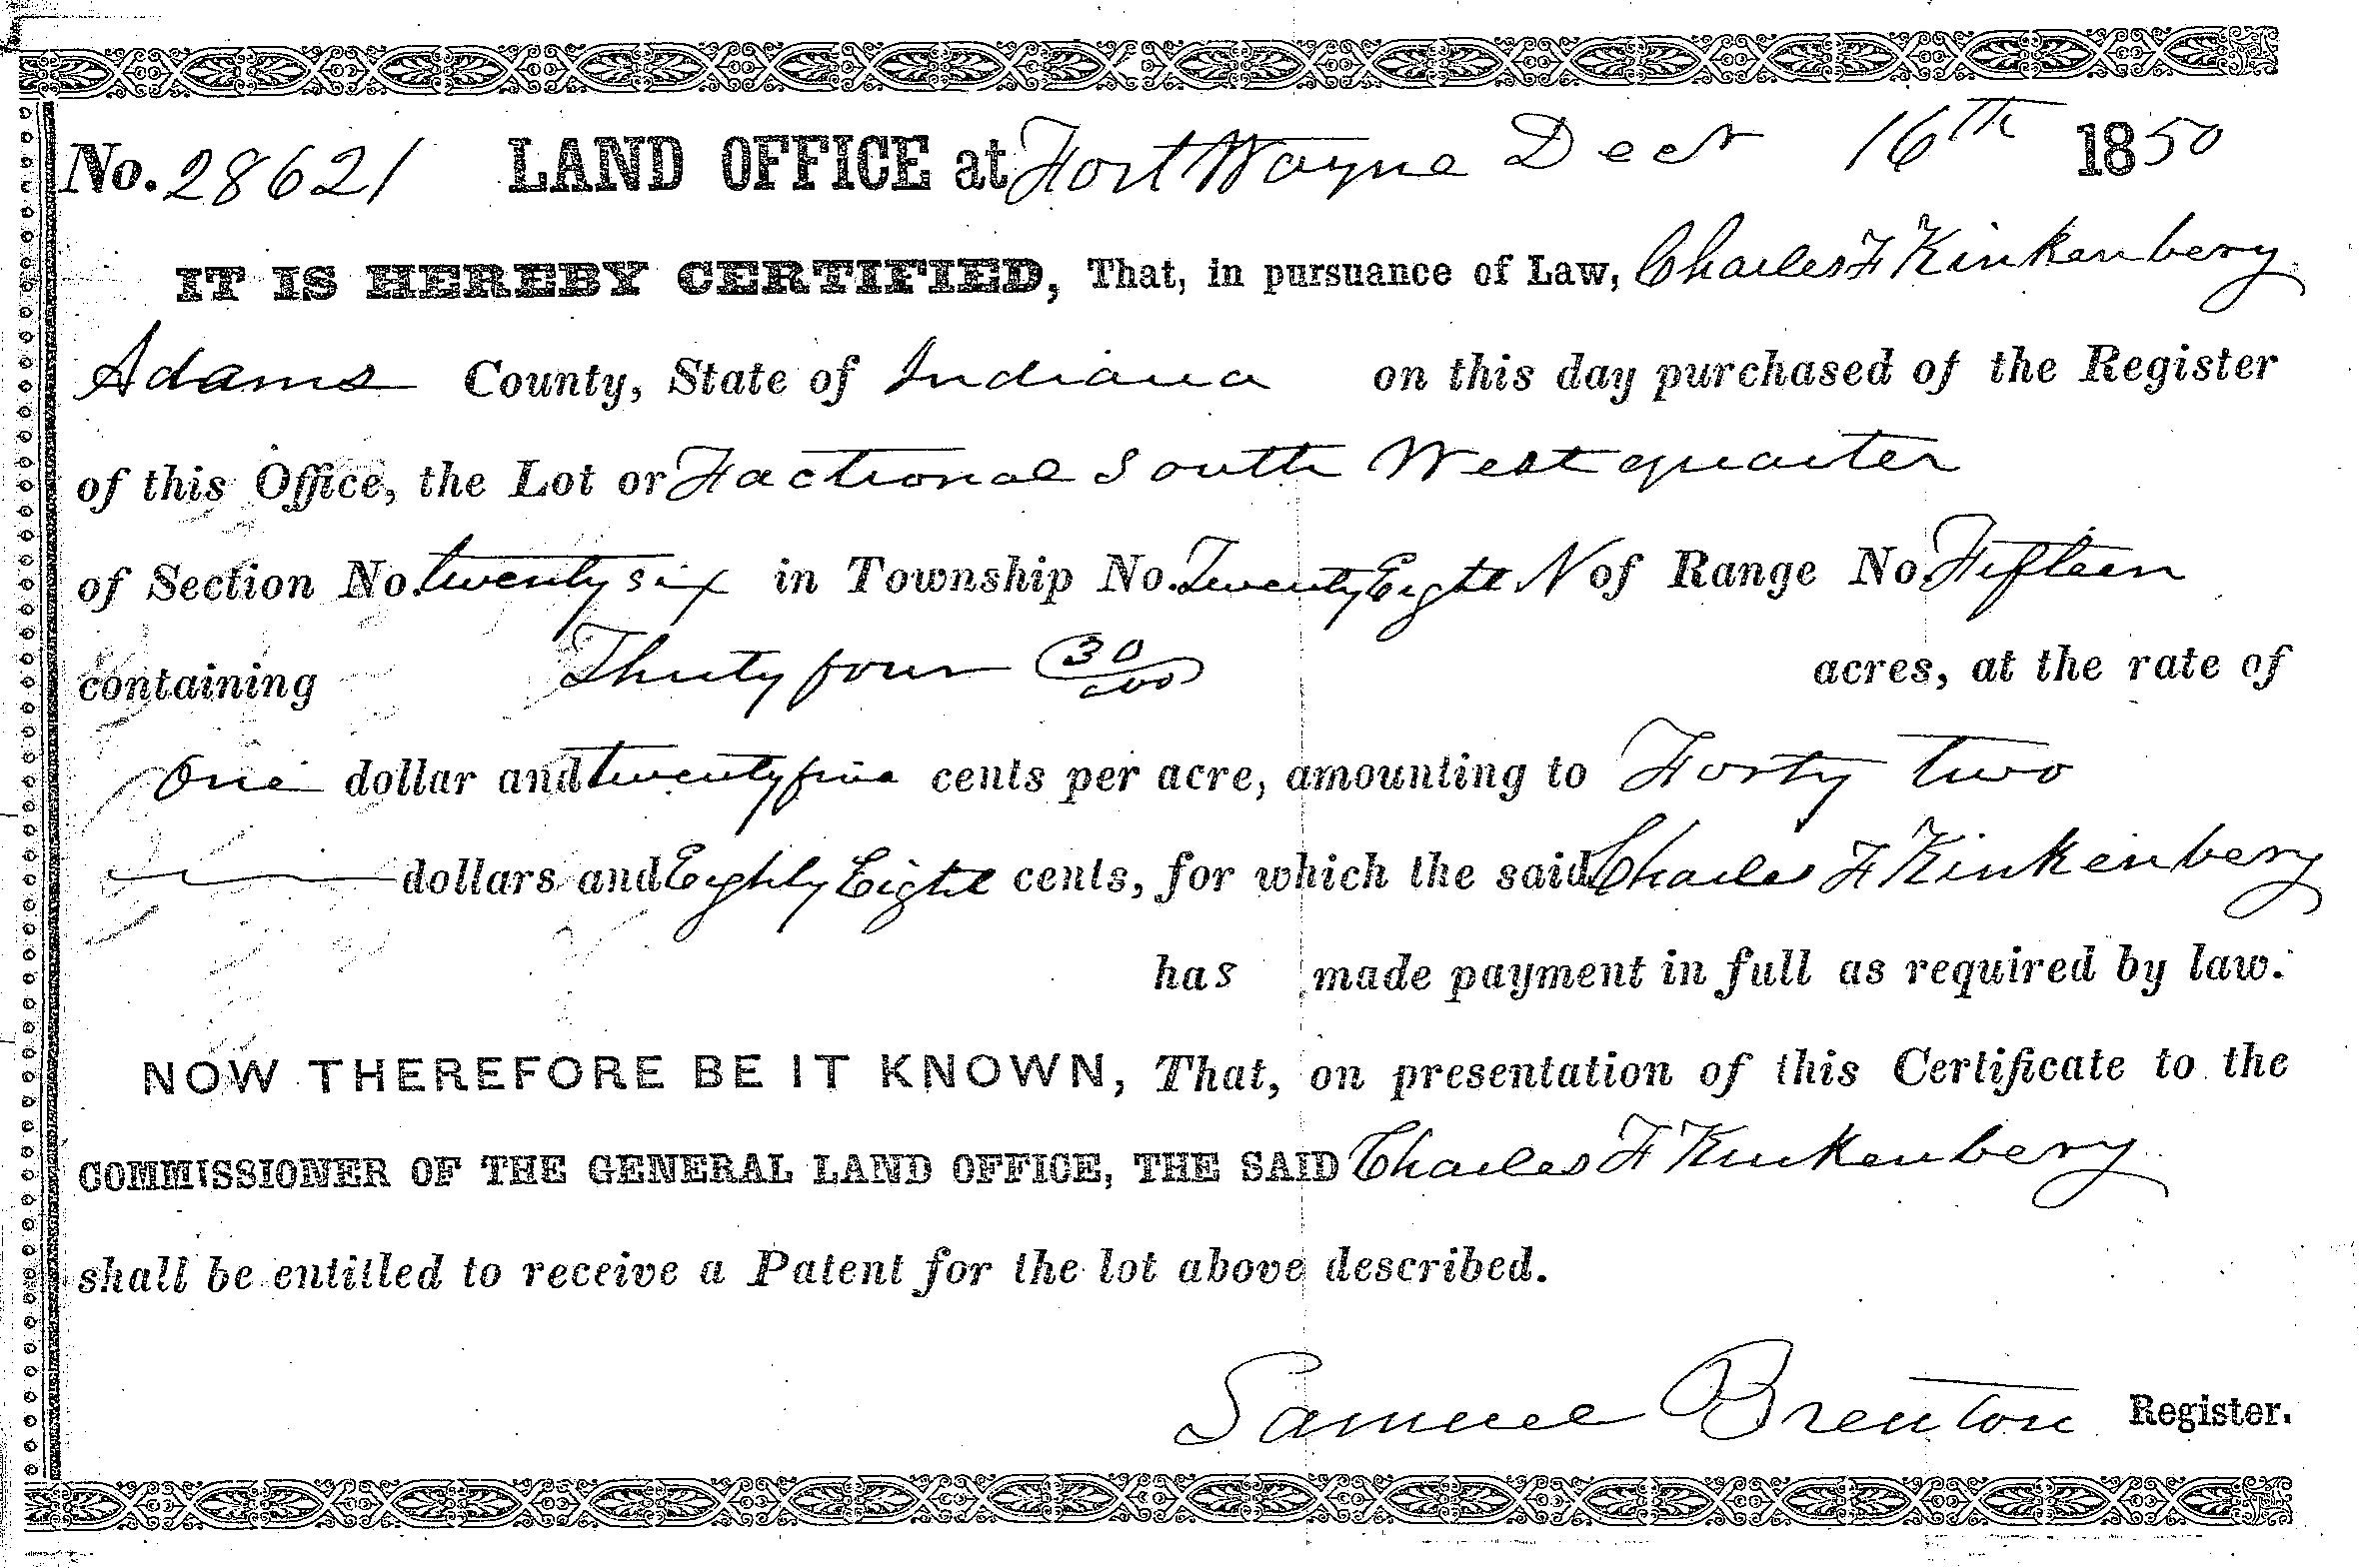 No. 28621 LAND OFFICE at Fort Wayne Decr 16th 1850
IT IS HEREBY CERTIFIED, That, in pursuance of Law, Charles F Kinkenbery
Adams County, State of Indiana on this day purchased of the Register
of this Office, the Lot or Factional South West quarter
of Section No. twenty six in Township No. Twenty Eight N of Range No. Fifteen
containing Thirty four 30/100 acres, at the rate of
One dollar and twenty five cents per acre, amounting to Forty two
dollars and Eighty Eight cents, for which the said Charles F Kinkenbery
has made payment in full as required by law.
NOW THEREFORE BE IT KNOWN, That, on presentation of this Certificate to the
COMMISSIONER OF THE GENERAL LAND OFFICE, THE SAID Charles F Kinkenbery
shall be entitled to receive a Patent for the lot above described.
Samuel Brenton Register.